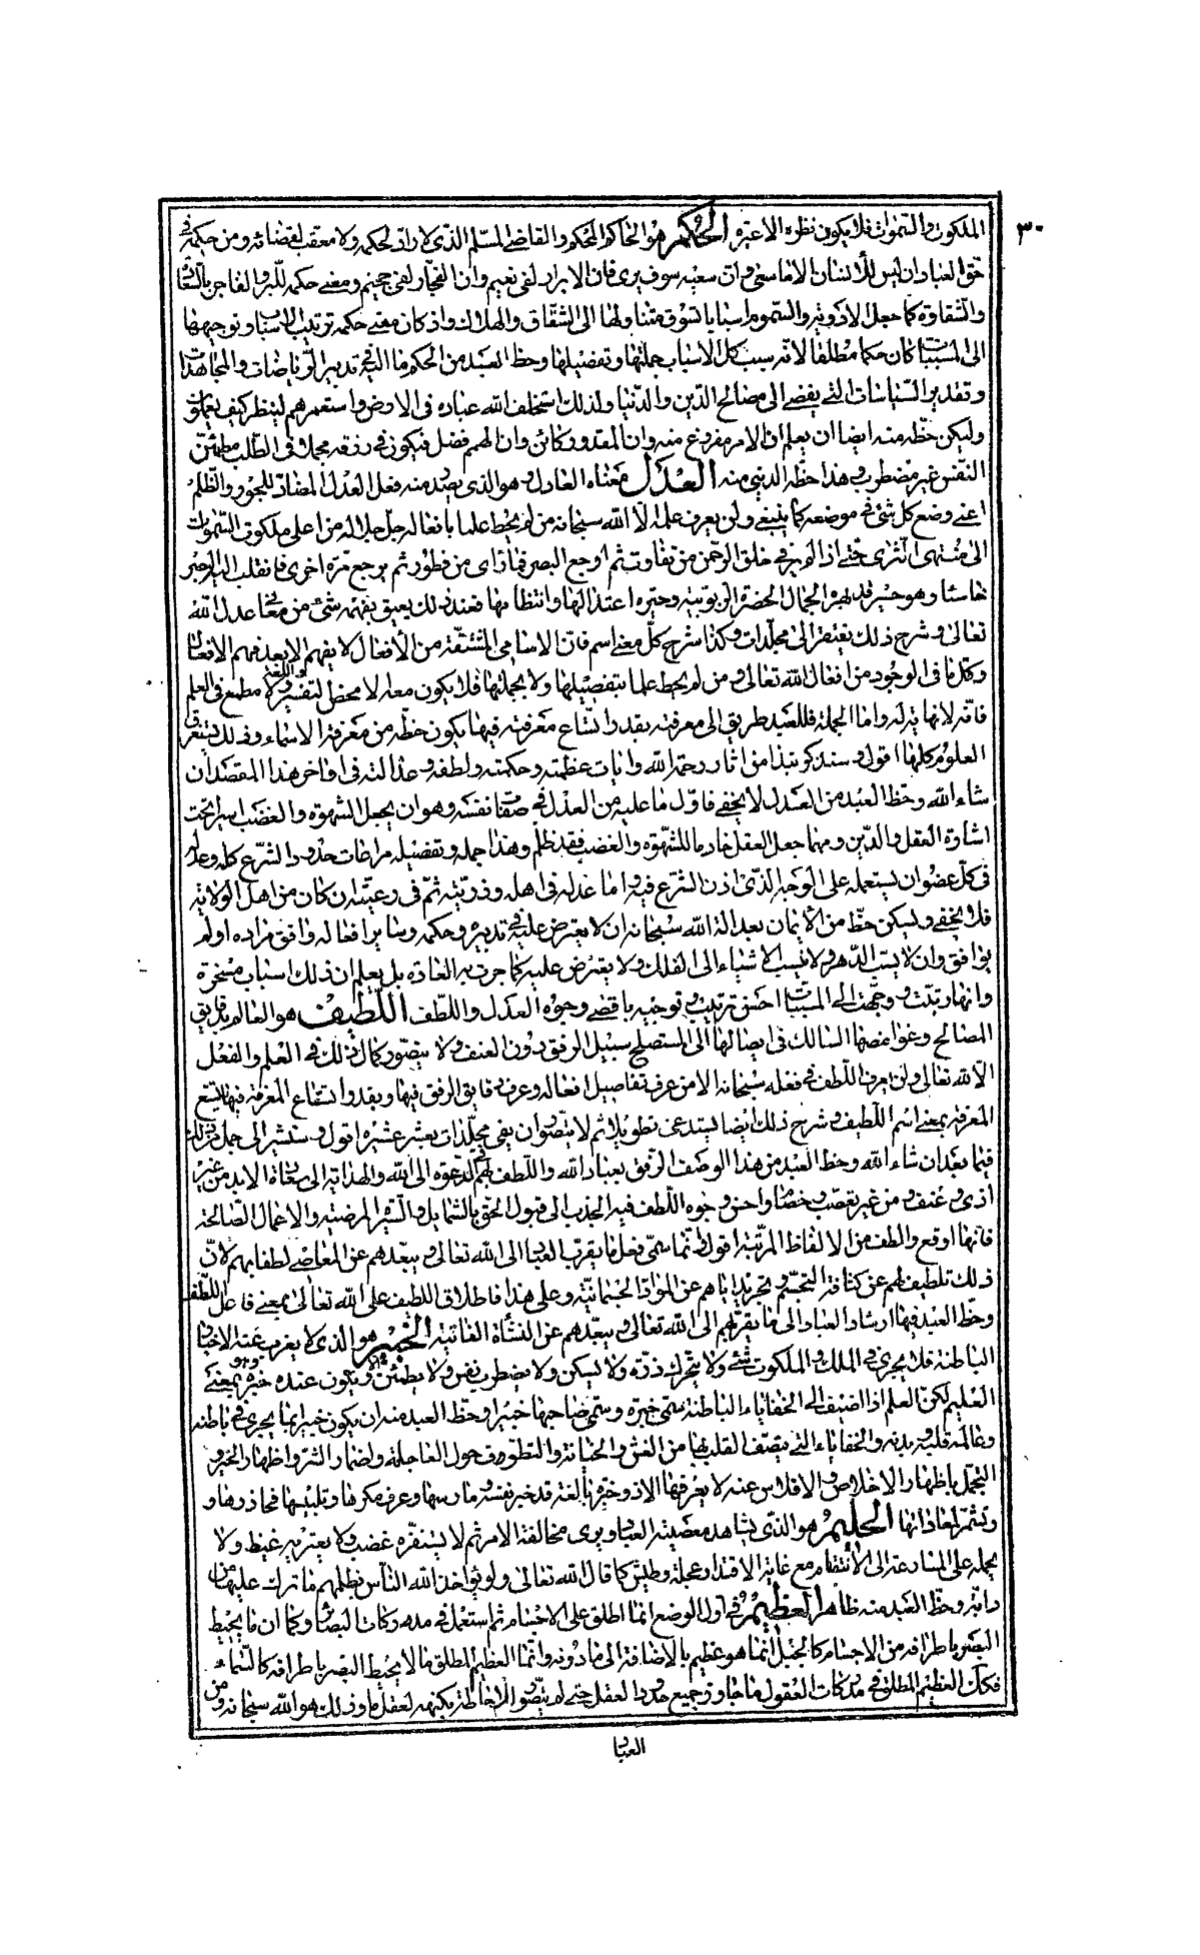 ٣٠
الملكوت والسموات فلا يكون نظره الا عبرة الحكم هو الحاكم المحكم والقاضي المسلم الذي لا راد لحكمه ولا معقب لقضائه ومن حكمه في
حق العباد ان ليس للانسان الا ما سعى وان سعيه سوف يرى فان الابرار لفي نعيم وان الفجار لفي جحيم ومعنى حكمه للبر والفاجر بالسعادة
والشقاوة كما جعل الادوية والسموم اسبابا تسوق متناولها الى الشفاء والهلاك واذ كان معنى حكمه ترتيب الاسباب وتوجيهها
الى المسببات كان حكما مطلقا لانه سبب كل الاسباب جملتها وتفصيلها وحظ العبد من الحكم ما اليه تدبير الرياضات والمجاهدات
وتقدير السياسات التي يفضي الى مصالح الدين والدنيا ولذلك استخلف الله عباده في الارض واستعمرهم لينظر كيف يعملون
وليكن حظه منه ايضا ان يعلم ان الامر مفروغ منه وان المقدور كائن وان الهم فضل فيكون في رزقه مجملا في الطلب مطمئن
النفس غير مضطرب هذا حظه الديني منه العدل معناه العادل وهو الذي يصدر منه فعل العدل المضاد للجور والظلم
اعني وضع كل شئ في موضعه كما ينبغي ولن يعرف عدله الا الله سبحانه من لم يحط علما بافعاله جل جلاله من اعلى ملكوت السموات
الى منتهى الثرى حتى اذا لم ير في خلق الرحمن من تفاوت ثم ارجع البصر فما راى من فطور ثم يرجع مرة اخرى فانقلب اليه البصر
خاسئا وهو حسير قد بهره الجمال الحضرة الربوبية وحيره اعتدالها وانتظامها فعند ذلك يعبق بفهمه شئ من معنى عدل الله
تعالى وشرح ذلك يفتقر الى مجلدات وكذا شرح كل معنى اسم فان الاسامي المشتقة من الافعال لا يفهم الا بعد فهم الافعال
وكل ما في الوجود من افعال الله تعالى ومن لم يحط علما بتفصيلها ولا بجملتها فلا يكون معه الا محض التفسير واللغة ولا مطمع في العلم
فانه لا نهاية له واما الجملة فللعبد طريق الى معرفته بقدر اتساع معرفته فيها يكون حظه من معرفة الاسماء وذلك يستغرق
العلوم كلها اقول وسنذكر نبذا من اثار رحمة الله وايات عظمته وحكمته ولطفه وعدالته في اواخر هذا المقصد ان
شاء الله وحظ العبد من العدل لا يخفى فاول ما عليه من العدل في صفات نفسه وهو ان يجعل الشهوة والغضب اسيرا تحت
اشارة العقل والدين ومهما جعل العقل خادما للشهوة والغضب فقد ظلم وهذا جملة وتفصيله مراعات حدود الشرع كله وعدله
في كل عضو ان يستعمله على الوجه الذي اذن الشرع فيه واما عدله في اهله وذريته ثم في رعيته ان كان من اهل الولاية
فلا يخفى وليكن حظه من الايمان بعدالة الله سبحانه ان لا يعترض عليه في تدبيره وحكمه وسائر افعاله وافق مراده او لم
يوافق وان لا يسب الدهر ولا ينسب الاشياء الى الفلك ولا يعترض عليه كما جرت به العادة بل يعلم ان ذلك اسباب مسخرة
وانها رتبت ووجهت الى المسببات احسن ترتيب وتوجيه باقصى وجوه العدل واللطف اللطيف هو العالم بدقايق
المصالح وغوامضها السالك في ايصالها الى المستصلح سبيل الرفق دون العنف ولا يتصور كمال ذلك في العلم والفعل
الا لله تعالى ولن يعرف اللطف في فعله سبحانه الا من عرف تفاصيل افعاله وعرف دقايق الرفق فيها وبقدر اتساع المعرفة فيها يتسع
المعرفة بمعنى اسم اللطيف وشرح ذلك ايضا يستدعي تطويلا ثم لا يتصور ان يفي مجلدات بعشر عشيره اقول وسنشير الى جمل من ذلك
فيما بعد ان شاء الله وحظ العبد من هذا الوصف الرفق بعباد الله واللطف لهم في الدعوة الى الله والهداية الى سعادة الابد من غير
اذى وعنف ومن غير تعصب وخصام واحسن وجوه اللطف فيه الجذب الى قبول الحق بالشمايل والسير المرضية والاعمال الصالحة
فانها اوقع والطف من الالفاظ المرتبة اقول وانما سمي فعل ما يقرب العباد الى الله تعالى ويبعدهم عن المعاصي لطفا بهم لان
ذلك تلطيف لهم عن كثافة التجسم وتجريد اياهم عن المواد الجسمانية وعلى هذا فاطلاق اللطيف على الله تعالى بمعنى فاعل اللطف
وحظ العبد فيها ارشاد العباد الى ما يقربهم الى الله تعالى ويبعدهم عن النشأة الفانية الخبير هو الذي لا يعزب عنه الاخبار
الباطنة فلا يجري في الملك والملكوت شئ ولا يتحرك ذرة ولا يسكن ولا يضطرب نفس ولا يطمئن الا ويكون عنده خبره وهو بمعنى
العليم لكن العلم اذا اضيف الى الخفايا الباطنة سمي خبرة وسمي صاحبها خبيرا وحظ العبد منه ان يكون خبيرا بما يجري في باطنه
وعالمه قلبه وبدنه والخفاياء التي يتصف القلب بها من الغش والخيانة والتطوف حول العاجلة واضمار الشر واظهار الخير و
التجمل باظهار الاخلاص والافلاس عنه لا يعرفها الا ذو خبرة بالغة قد خبر نفسه ومارسها وعرف مكرها وتلبيسها فحاذرها و
وتشمر لمعاداتها الحليم هو الذي يشاهد معصية العباد ويرى مخالفة الامر ثم لا يستفزه غضب ولا يعتريه غيظ ولا
يحمله على المسارعة الى الانتقام مع غاية الاقتدار عجلة وطيش كما قال الله تعالى ولو يؤاخذ الله الناس بظلمهم ما ترك عليها من
دابة وحظ العبد منه ظاهر العظيم في اول الوضع انما اطلق على الاجسام ثم استعمل في مدركات البصائر وكما ان ما يحيط
البصر باطرافه من الاجسام كالجبل انما هو عظيم بالاضافة الى ما دونه وانما العظيم المطلق ما لا يحيط البصر باطرافه كالسماء
فكذلك العظيم المطلق في مدركات العقول ما جاوز جميع حدود العقل حتى لم يتصور الاحاطة بكنهه لعقل ما وذلك هو الله سبحانه ومن
العباد